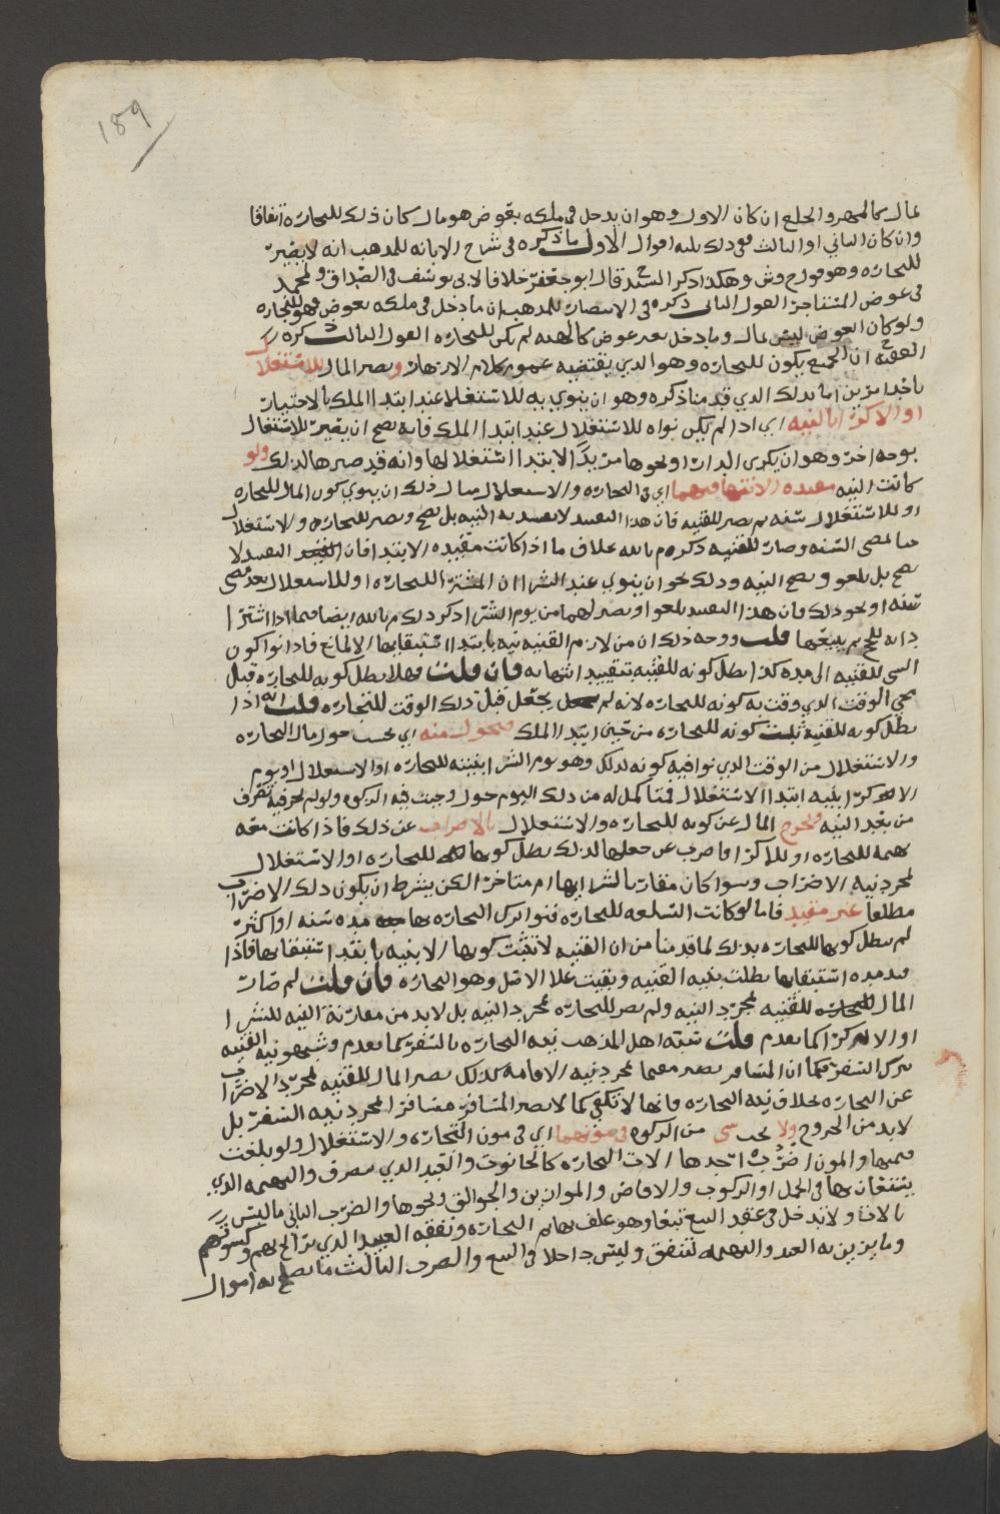 189
لمال كالمهر والخلع ان كان الاول وهو ان يدخل في ملكه بعوض هو مال كان ذلك للتجارة اتفاقا
وان كان الثاني او الثالث ففي ذلك ثلثه اقوال الاول ما ذكره في شرح الابانه للمذهب انه لا يصير
للتجاره وهو قول ح وش وهكذا ذكر السيد ح قال ابو جعفر خلافا لابي يوسف في الصداق ولمحمد
في عوض المتفاجز القول الثاني ذكره في الانتصار للمذهب ان ما دخل في ملكه بعوض فهو للتجاره
ولو كان العوض ليس بمال وما دخل بغير عوض كالهبه لم يكن للتجاره القول الثالث ذكره
الفقيه ح ان الجميع يكون للتجاره وهو الذي يقتضيه عموم كلام الازهار ويصير المال للاستغلال
باحد امرين اما بذلك الذي قدمنا ذكره وهو ان ينوي به للاستغلال عند ابتدا الملك بالاختيار
او الاكرا بالنيه اي اذا لم يكن نواه للاستغلال عند ابتدا الملك فانه يصح ان يصير للاستغلال
بوجه اخر وهو ان يكري الدار او نحوها مريدًا لابتدا استغلالها وانه قد صيرها لذلك ولو
كانت النيه مقيده الانتها فيهما اي في التجاره والاستغلال مثال ذلك ان ينوي كون المال للتجاره
او للاستغلال سنه ثم يصير للقنيه فان هذا التقييد لا تفسد به النيه بل تصح ويصير للتجاره والاستغلال
حتا تمضي السنه وصار للقنيه ذكره م بالله بخلاف ما اذا كانت مقيده الابتدا فان التقييد لا
يصح بل يلغو وتصح النيه وذلك نحو ان ينوي عند الشرا ان المشترا للتجاره او للاستغلال بعد مضي
سنه او نحو ذلك فان هذا التقييد يلغو ويصير لهما من يوم الشرا ذكر ذلك م بالله ايضا فيما اذا اشترا
دابه للحج ثم يبيعها قلت ووجه ذلك ان من لازم القنيه نيه ابتدا استبقايها لا لمانع فاذا نوا كون
الشي للقنيه الى مده كذا بطل كونه للقنيه بتقييد انتهايه فان قلت فهلا بطل كونه للتجاره قبل
مجي الوقت الذي وقت به كونه للتجاره لانه لم يجعل قبل ذلك الوقت للتجاره قلت انه اذا
بطل كونه للقنيه ثبت كونه للتجاره من حين ابتدا الملك فتحول منه اي يحسب حول مال التجاره
والاستغلال من الوقت الذي نوا فيه كونه لذلك وهو يوم الشرا بنيته للتجاره او الاستغلال او يوم
الاكرا بنيه ابتدا الاستغلال فمتا كمل له من ذلك اليوم حول وجبت فيه الزكوه ولو لم يجر فيه تصرف
من بعد النيه ويخرج المال عن كونه للتجاره والاستغلال بالاضراب عن ذلك فاذا كانت معه
بهيمه للتجاره او للاكرا فاضرب عن جعلها لذلك بطل كونها للتجاره او الاستغلال
بمجرد نيه الاضراب وسوا كان مقارنا لشرايها ام متاخرا لكن بشرط ان يكون ذلك الاضراب
مطلقا غير مقيد فاما لو كانت السلعه للتجاره فنوا ترك التجاره بها مده سنه او اكثر
لم يبطل كونها للتجاره بذلك لما قدمنا من ان القنيه لا تثبت كونها الا بنيه ابتدا استبقايها فاذا
قيد مده استبقايها بطلت نيه القنيه وبقيت علا الاصل وهو التجاره فان قلت لم صار
المال للقنيه بمجرد النيه ولم يصر للتجاره بمجرد النيه بل لا بد من مقارنة النيه للشرا
او الاكرا كما تقدم قلت شبه اهل المذهب نيه التجاره بالسفر كما تقدم وشبهو نيه القنيه
بترك السفر فكما ان المسافر يصير مقيما بمجرد نيه الاقامه كذلك يصير المال للقنيه بمجرد الاضراب
عن التجاره بخلاف نيه التجاره فانها لا تكفي كما لا يصير المسافر مسافرا بمجرد نيه السفر بل
لا بد من الخروج ولا يجب شي من الزكوه في مونهما اي في مون التجاره والاستغلال ولو بلغت
قيمتها والمون اضرُب احدها الات التجاره كالحانوت والعبد الذي يتصرف والبهيمه الذي
ينتفعان بها في الحمل او الركوب والاقفاص والموازين والجوالق ونحوها والضرب الثاني ما ليس
بالات ولا تدخل في عقد البيع تبعا وهو علف بهايم التجاره ونفقه العبيد الذي تراح بهم وكسوتهم
وما يزين به العبد والبهيمه لتنفق وليس داخلا في البيع والضرب الثالث ما يصلح به اموال